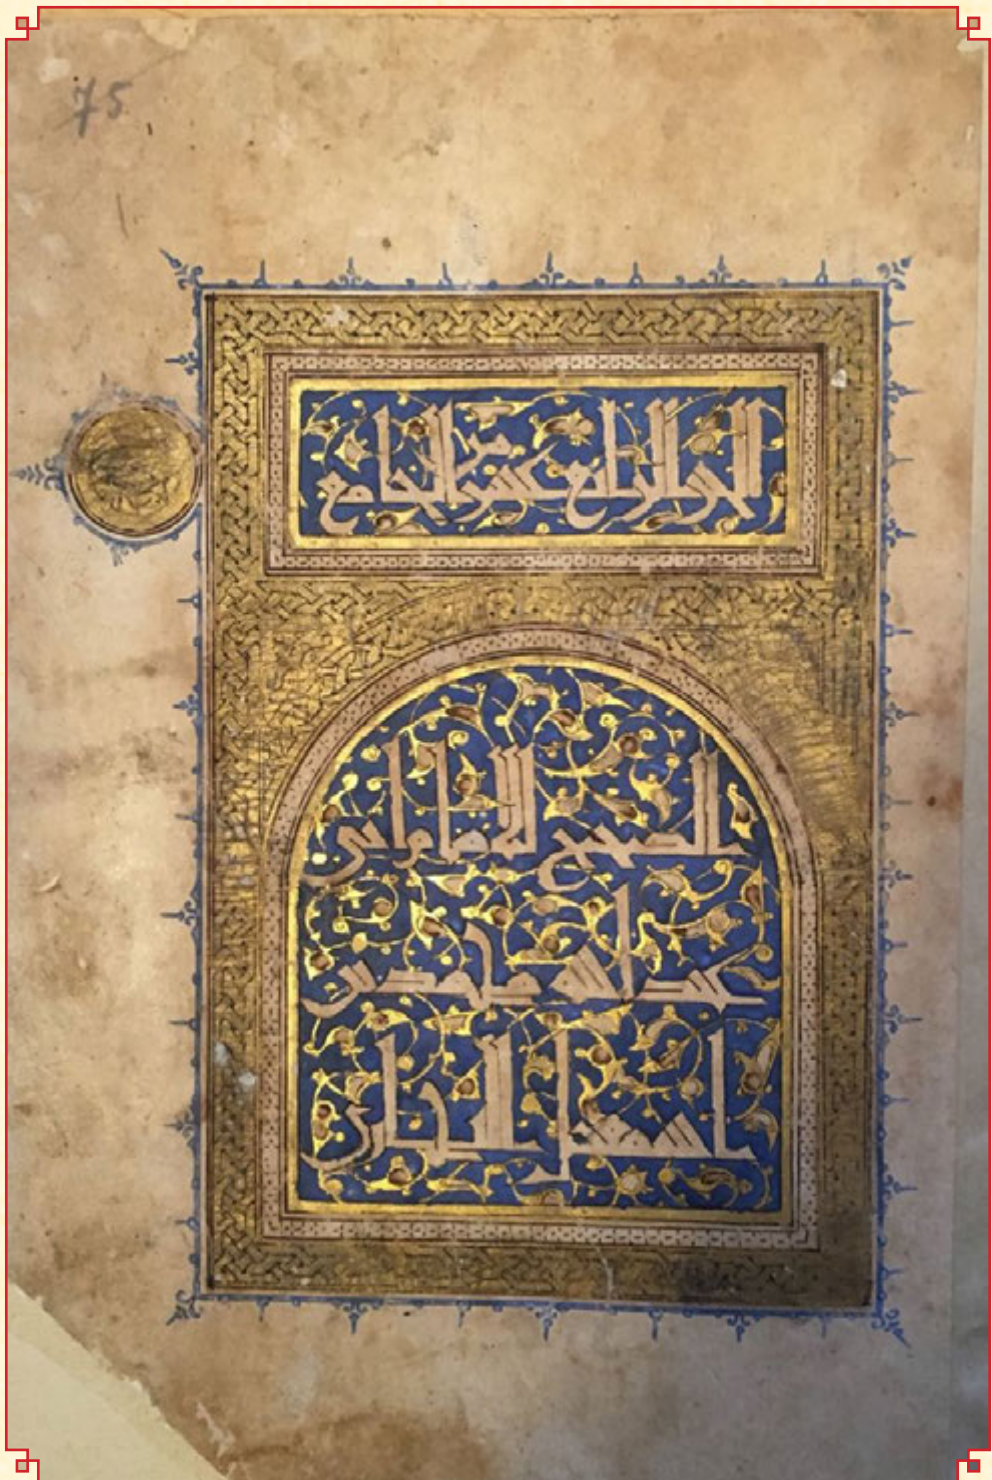 75
الجزء الرابع عشر من الجامع
الصحيح للامام ابي
عبد الله محمد بن
اسمعيل البخاري